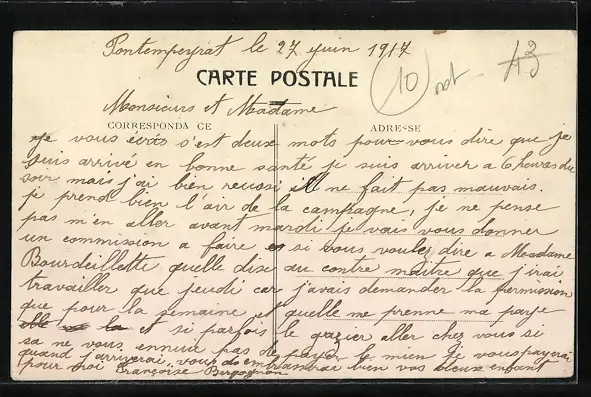 Pontempeyrat le 27 juin 1917
CARTE POSTALE
10 not 43
Monsieurs et Madame
CORRESPONDA CE ADRESSE
je vous écris s'est deux mots pour vous dire que je
suis arrivé en bonne santé je suis arriver a 6 heures du
soir mais j'ai bien reussi il ne fait pas mauvais.
je prend bien l'air de la campagne, je ne pense
pas m'en aller avant mardi je vais vous donner
un commission a faire si vous voulez dire a Madame
Bourdeillette quelle dise au contre maitre que j'irai
travailler que jeudi car j'avais demander la permission
que pour la semaine et quelle me prenne ma paye
et si parfois le gazier aller chez vous si
sa ne vous ennuie pas de payer le mien je vous payerai
quand j'arriverai, vous embrasserai bien vos deux enfant
pour moi Françoise Bergognon